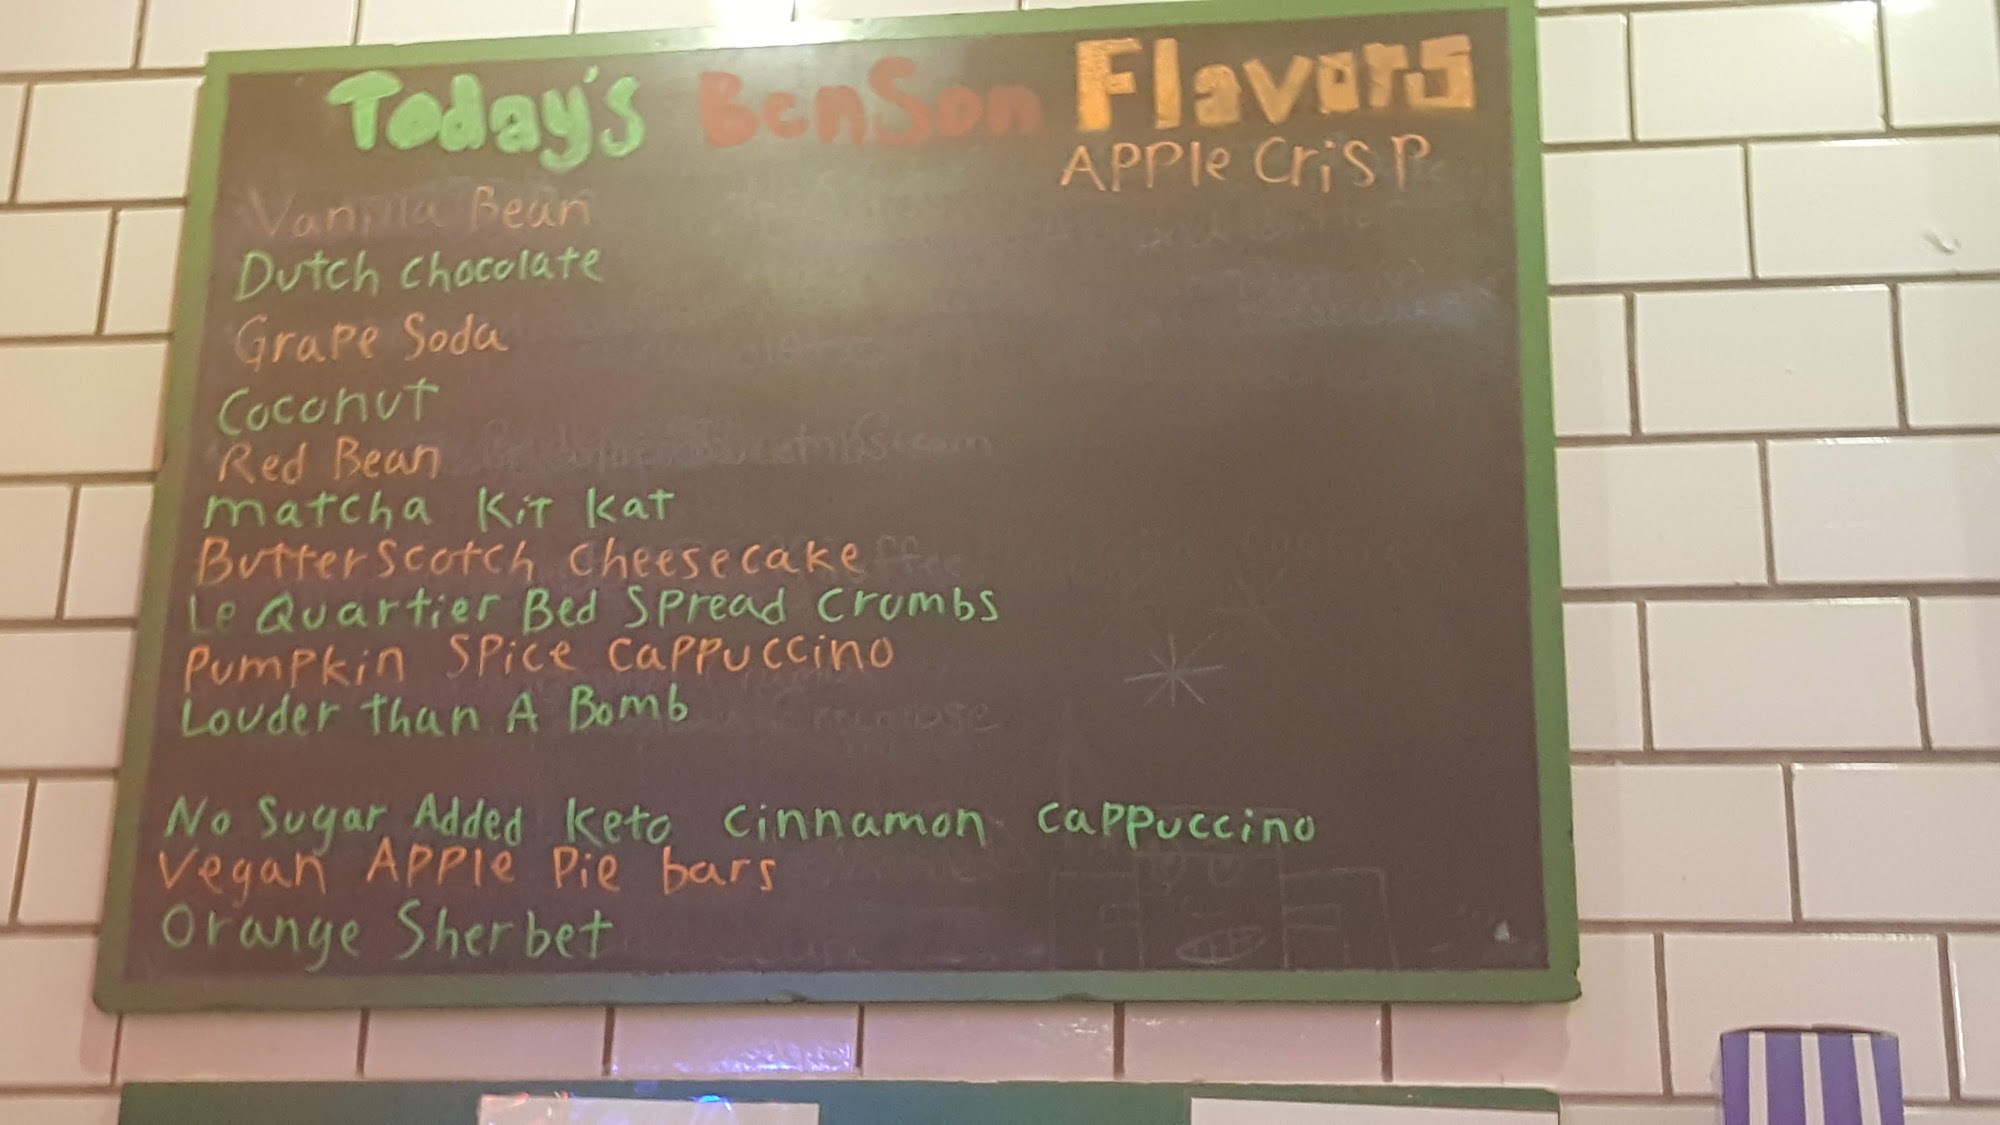 Today's BenSon Flavors
APPle CriSP
Vanilla Bean
Dutch chocolate
Grape Soda
Coconut
Red Bean
matcha Kit Kat
ButterScotch cheesecake
Le Quartier Bed Spread Crumbs
Pumpkin Spice cappuccino
Louder than A Bomb
No Sugar Added Keto cinnamon cappuccino
Vegan APPle Pie bars
Orange Sherbet